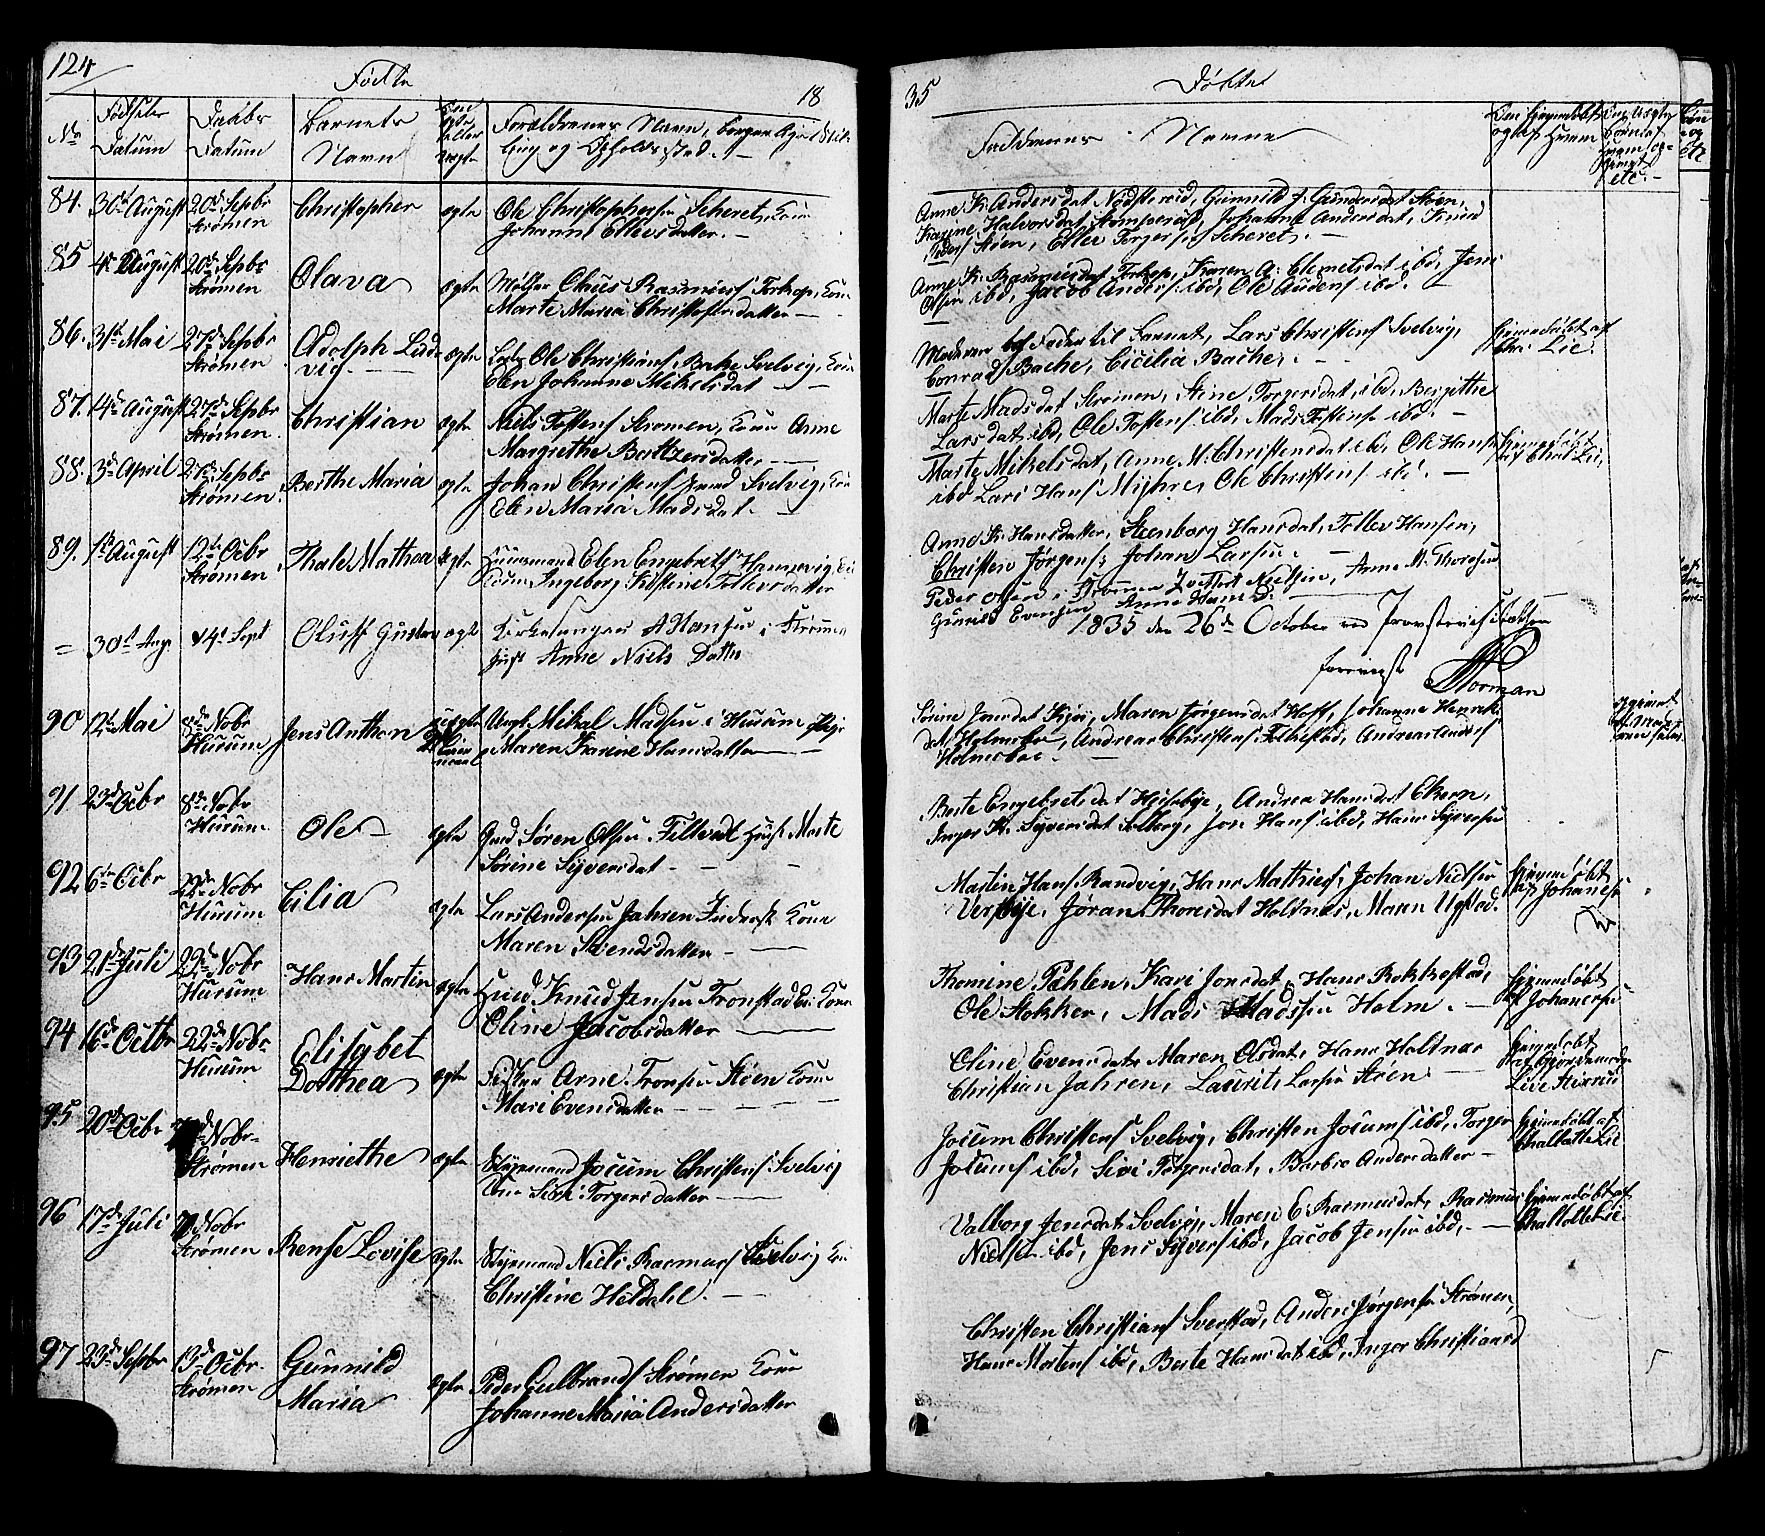 124
Födte
18
No
Födsels Datum
Daabs Datum
Barnets Navn
ægte eller uægte
Forældrenes Navn, Borgerlige
og Opholdssted. —
84. 30te August 20de Sepbr Strömen Christopher ægte Ole Christophersen Scheret, Kone
Johanne Ellevsdatter. —
85 4de August 20de Sepbr Strömen Olava ægte Möller Claus Rasmus Torkop, Kone
Marte Maria Christophersdatter —
86. 31te Mai 27de Sepbr Strömen Adolph Lud-
vig ægte Ole Christians Bache Svelvig, Kone
Elen Johanne Mikelsdat —
87. 14de August 27de Sepbr Strömen Christian ægte Niels Tostens Strömen, Kone Anne
Margrethe Berttzersdatter —
88. 3de April 27de Sepbr Strömen Berthe Maria ægte Johan Christens Svelvig, Kone
Elen Maria Madsdat. —
89. 1te August 12te Octbr Strömen Thale Mathea ægte Huusmand Elen Engebrets Hannevig,
Ingeborg Kistine Tollevsdatter
= 30te Aug. 14de Sept Oluff Gustav ægte Kirkesanger A Hansen i Strömmen
Hust Anne Niels Datter
90 12te Mai 8de Nobr Hurum Jens Anthon uægte Ungk. Mikal Madsen i Hurum Pige
Maren Karine Hansdatter —
91 23de Octbr 8de Nobr Hurum Ole ægte Gmd Sören Olsen Tiltvedt Hust. Marte
Sörine Syversdat —
92 6te Octbr 22de Nobr Hurum Cilia ægte Lars Andersen Jahren Inderst Kone
Maren Svendsdatter —
93 21de Juli 22de Nobr Hurum Hans Martin ægte Huusmd Knud Jensen Tronstad Ei. Kone
Oline Jacobsdatter —
94 16de Octbr 22de Nobr Hurum Elisabet
Dorthea ægte Fisker Arne Tronsen Stöen Kone
Mari Evensdatter —
95 20de Octbr Nobr Strömen Henriethe ægte Styrmand Jocum Christens Svelvig
Kone Siri Torgersdatter —
96 17de Juli Nobr Strömen Rense Lovise ægte Styrmand Niels Rasmus Svelvig Kone
Christine Heldahl. —
97 23de Sepbr 13de Octbr Strömen Gunnild
Maria ægte Peder Gulbrands Strömen Kone
Johanne Maria Andersdatter
35
Döbte
Faddernes Navne
Om Hjemmedöbt og af Hvem
Anne K. Andersdat Nödsteröd, Gunnild J. Gundersdat Stöen,
Karine Halvorsdat Stömperöd, Johanne Andersdat, Knud
Peders Stöen, Ellev Torgersen Scheret. —
Anne K. Rasmusdat Torkop, Karen A. Clemetsdat ibd, Jens
Olsen ibd, Jacob Anders ibd, Ole Audens ibd. —
Moderen og Fader til Barnet, Lars Christens Svelvig,
Conrad Bache, Cicilia Bache. —
Hjemedöbt af Chr. Lie.
Marte Madsdat Strömen, Stine Torgersdat ibd, Bergitthe
Larsdat ibd, Ole Tostens ibd, Mads Tostens ibd. —
Marte Mikelsdat, Anne M. Christensdat ibd, Ole Hans
ibd Lars Hans Myhre, Ole Christens ibd. —
Hjemedöbt af Chal Lie,
Anne K. Hansdatter, Steenborg Hansdat, Tollev Hansen,
Christen Jörgens, Johan Larsen. —
Peder Olsen i Strömmen Zakk Nielsen, Anne M. Thoresen
Gunild Evensen Anne Hans D.
1835 den 26de October ved Provstevisitatsen
foreviist Norman
Sörine Jonsdat Kjös, Maren Jörgensdat Hoff, Johanne Henriks
dat Holmsbo, Andreas Christens Tollestad, Andreas Anders
Holmsboe. —
Berte Engebretsdat Huseböe, Andrea Hansdat Ekern,
Inger K. Syversdat Solberg, Jon Hans ibd, Hans Syversen
Martin Hans Randvig, Hans Mathies, Johan Nielsen
Verpöye, Jöran Thoresdat Holtnes, Maren Ugstad.
Hjemmedöbt af Johansen
Thomine Pæhlen, Kari Jonsdat, Hans Rokkestad,
Ole Stokker, Mads Madssen Holm. —
Hjemedöbt af Johansen
Oline Evensdatr Maren Olsdat, Hans Holtnes
Christian Jahren, Laurits Larsen Stöen —
Hjemedöbt af Gjordemoder
Jocum Christens Svelvig, Christen Jocums ibd, Torger
Jocums ibd, Siri Torgersdat, Barbro Andersdatter —
Hjemedöbt af Challotte Lie
Valborg Jensdat Svelvig, Maren E. Rasmusdat, Rasmus
Nielsen ibd, Jens Syvers ibd, Jacob Jensen ibd, —
Hjemedöbt af Challotte Lie
Christen Christians Sverstad, Anders Jörgensen Strömen,
Hans Mortens ibd, Berte Hansdat ibd, Inger Christiansd